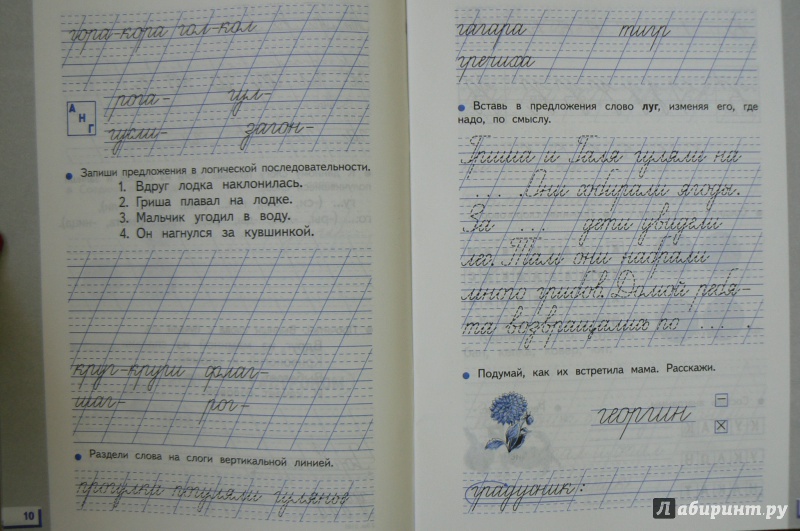 гора-кора гол-кол
рога- гул-
А Н Г
гусли- загон-
Запиши предложения в логической последовательности.
1. Вдруг лодка наклонилась.
2. Гриша плавал на лодке.
3. Мальчик угодил в воду.
4. Он нагнулся за кувшинкой.
круг-круги флаг-
шаг- рог-
Раздели слова на слоги вертикальной линией.
прогулка погуляли
10
гагара тигр
гречиха
Вставь в предложения слово луг, изменяя его, где
надо, по смыслу.
Гриша и Галя гуляли на
... . Они собирали ягоды.
За ... дети увидели
лес. Там они набрали
много грибов. Домой ребя-
та возвращались по ... .
Подумай, как их встретила мама. Расскажи.
георгин
градусник:
Лабиринт.ру